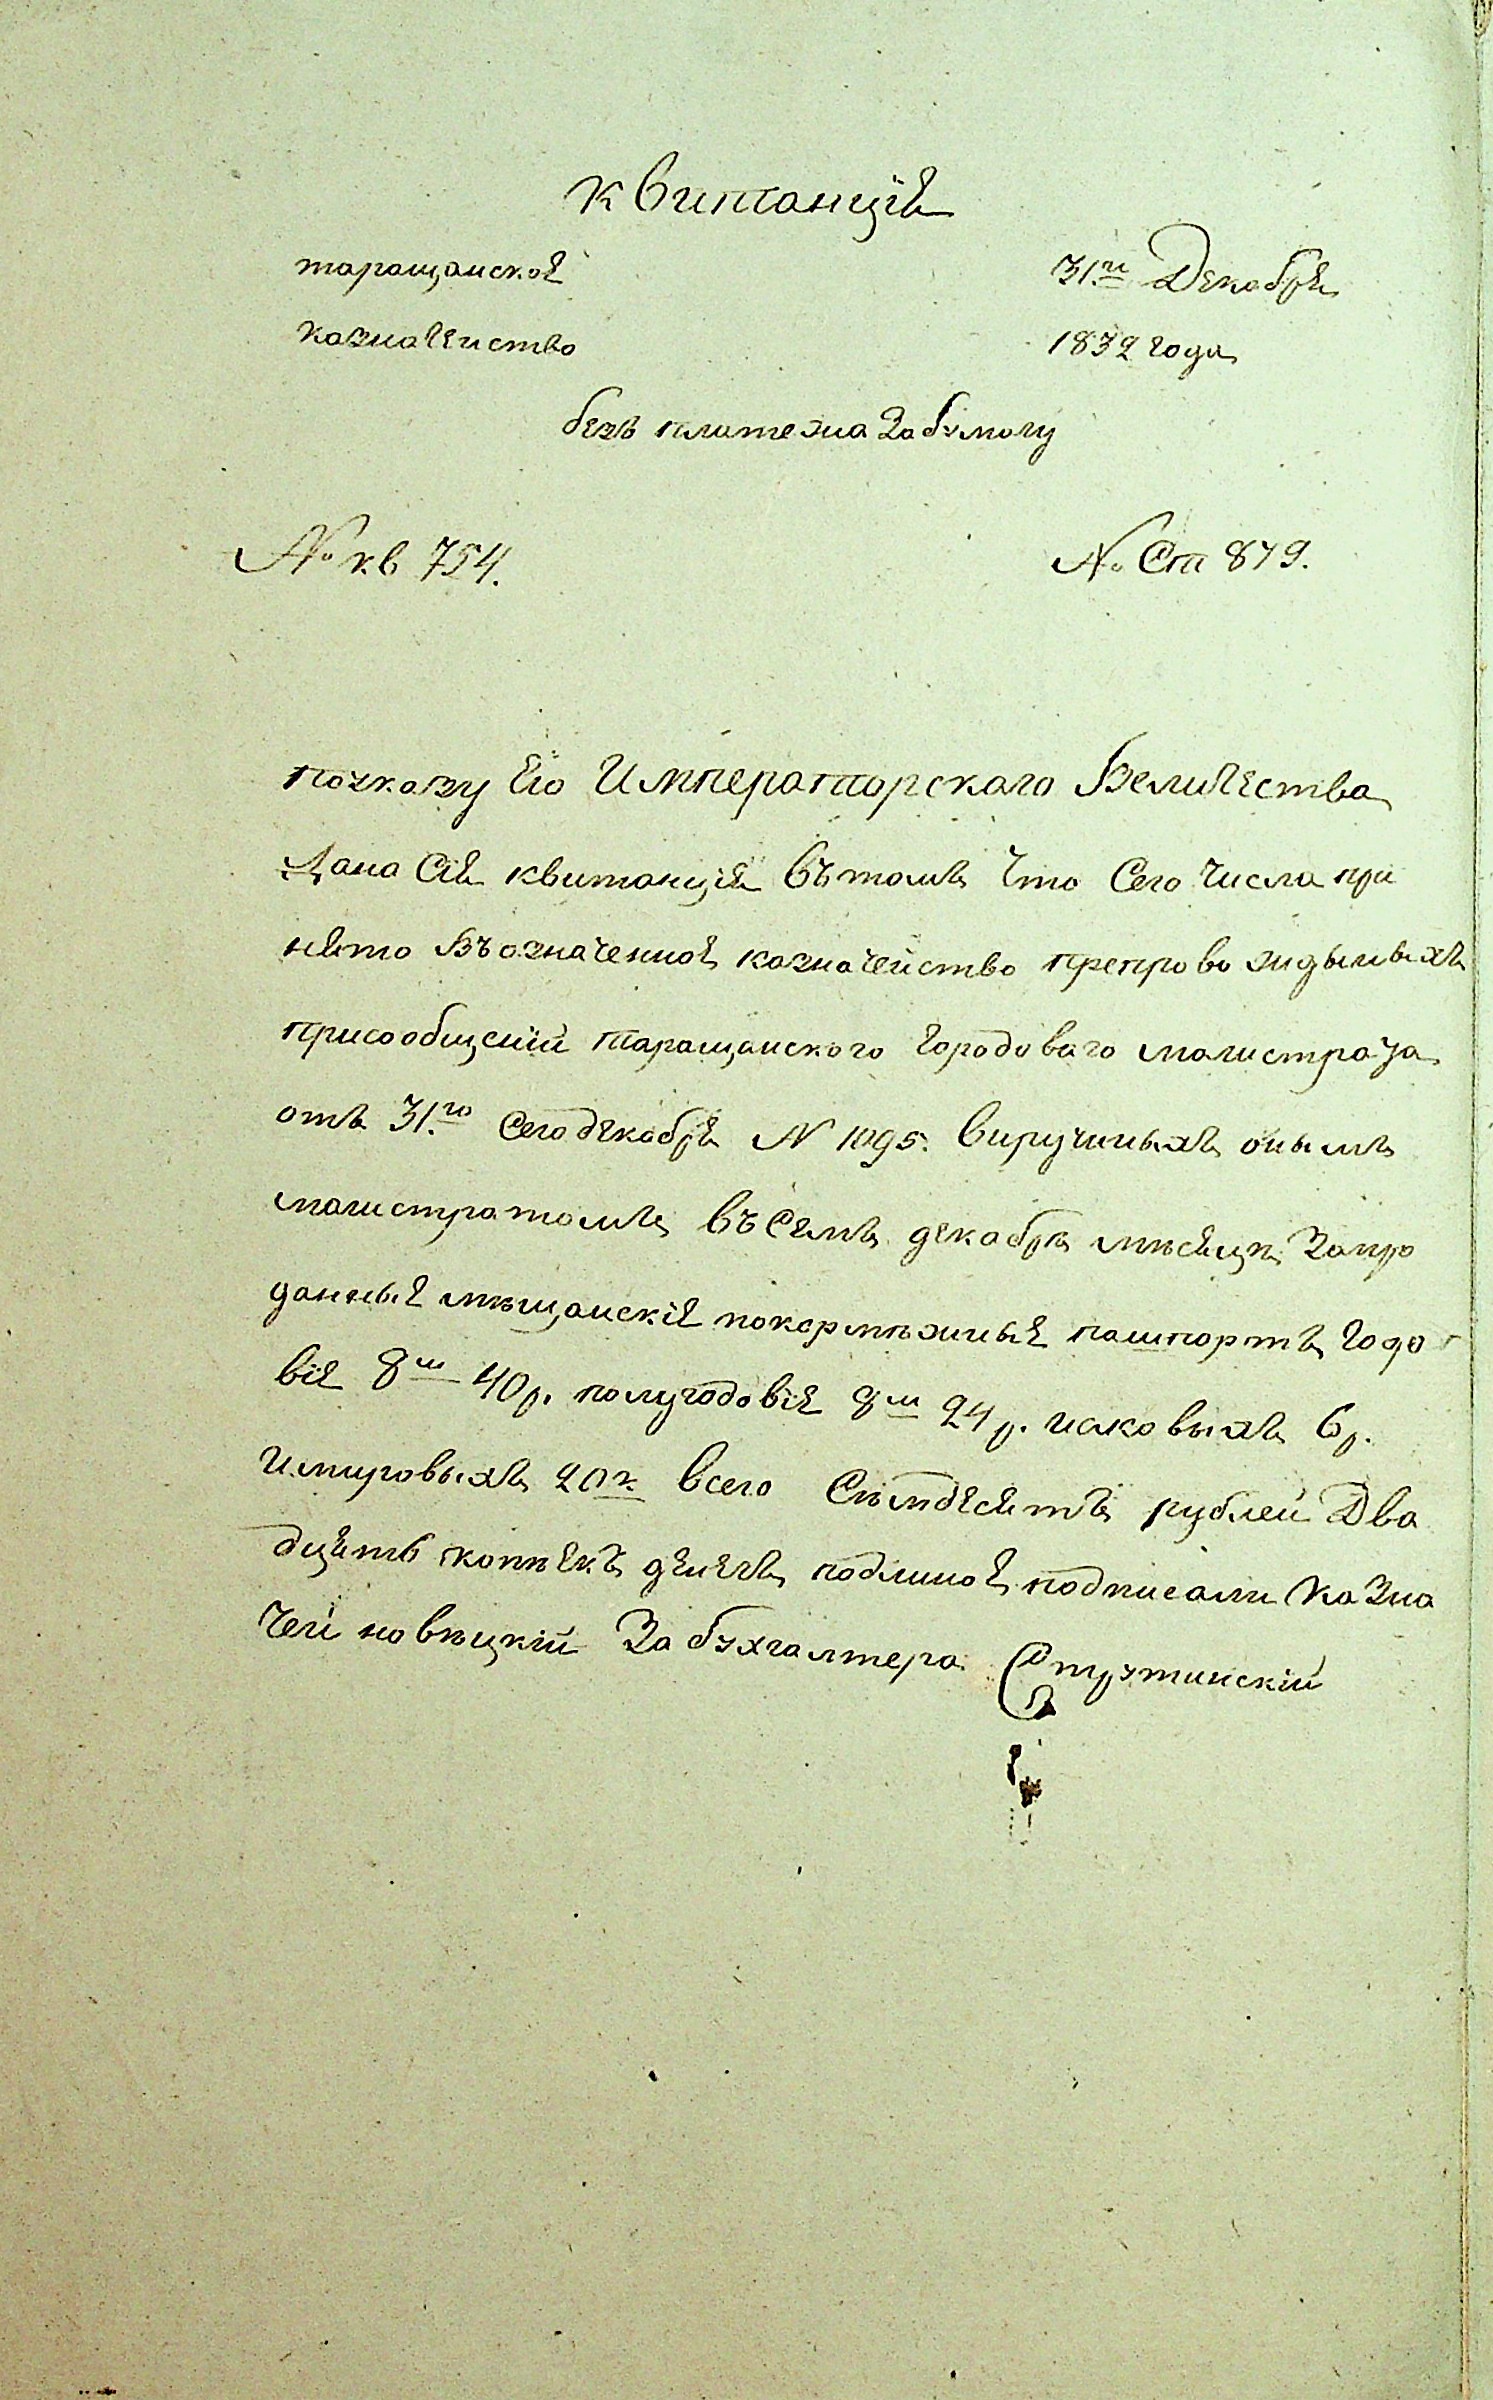 квитанцiя
таращанское 31го Декабря
казначеиство 1832 года
безъ платежа За бумагу
№ кв 754. № Ст 879.
по указу Его Императорскаго Величества
Дана Сiя квитанцiя въ томъ что Сего числа при
нято въ означенное казначейство препровождыныхъ
при сообщенiй таращанского городоваго магистрата
отъ 31.го Сего декабря N 1095. виручиныхъ онымъ
магистратомъ въ Семъ декабрѣ мѣсяцѣ За про
данные мѣщанскiе покормѣжные пашпортъ годо
вiе 8м 40 р. полугодовiе 8м 24 р. исковыхъ 6 р.
имировыхъ 20 к всего Сѣмдесятъ рублей Два
дцять копѣекъ денегъ подлиное подписали Казна
чей новѣцкiй За бухгалтера Струтинскiй